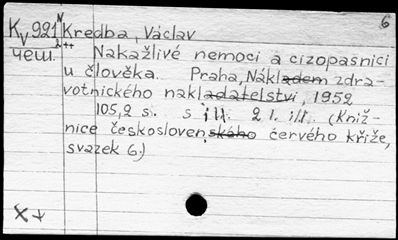 6
K V 921 Kredba, Václav
чеш. Nakažlivé nemoci a cizopasnici
u člověka. Praha, Nákladem zdra-
votnického nakladatelství, 1952
105,2 s. s ill. 2 l. ill. (Kniž-
nice československého červého kříže,
svazek 6.)